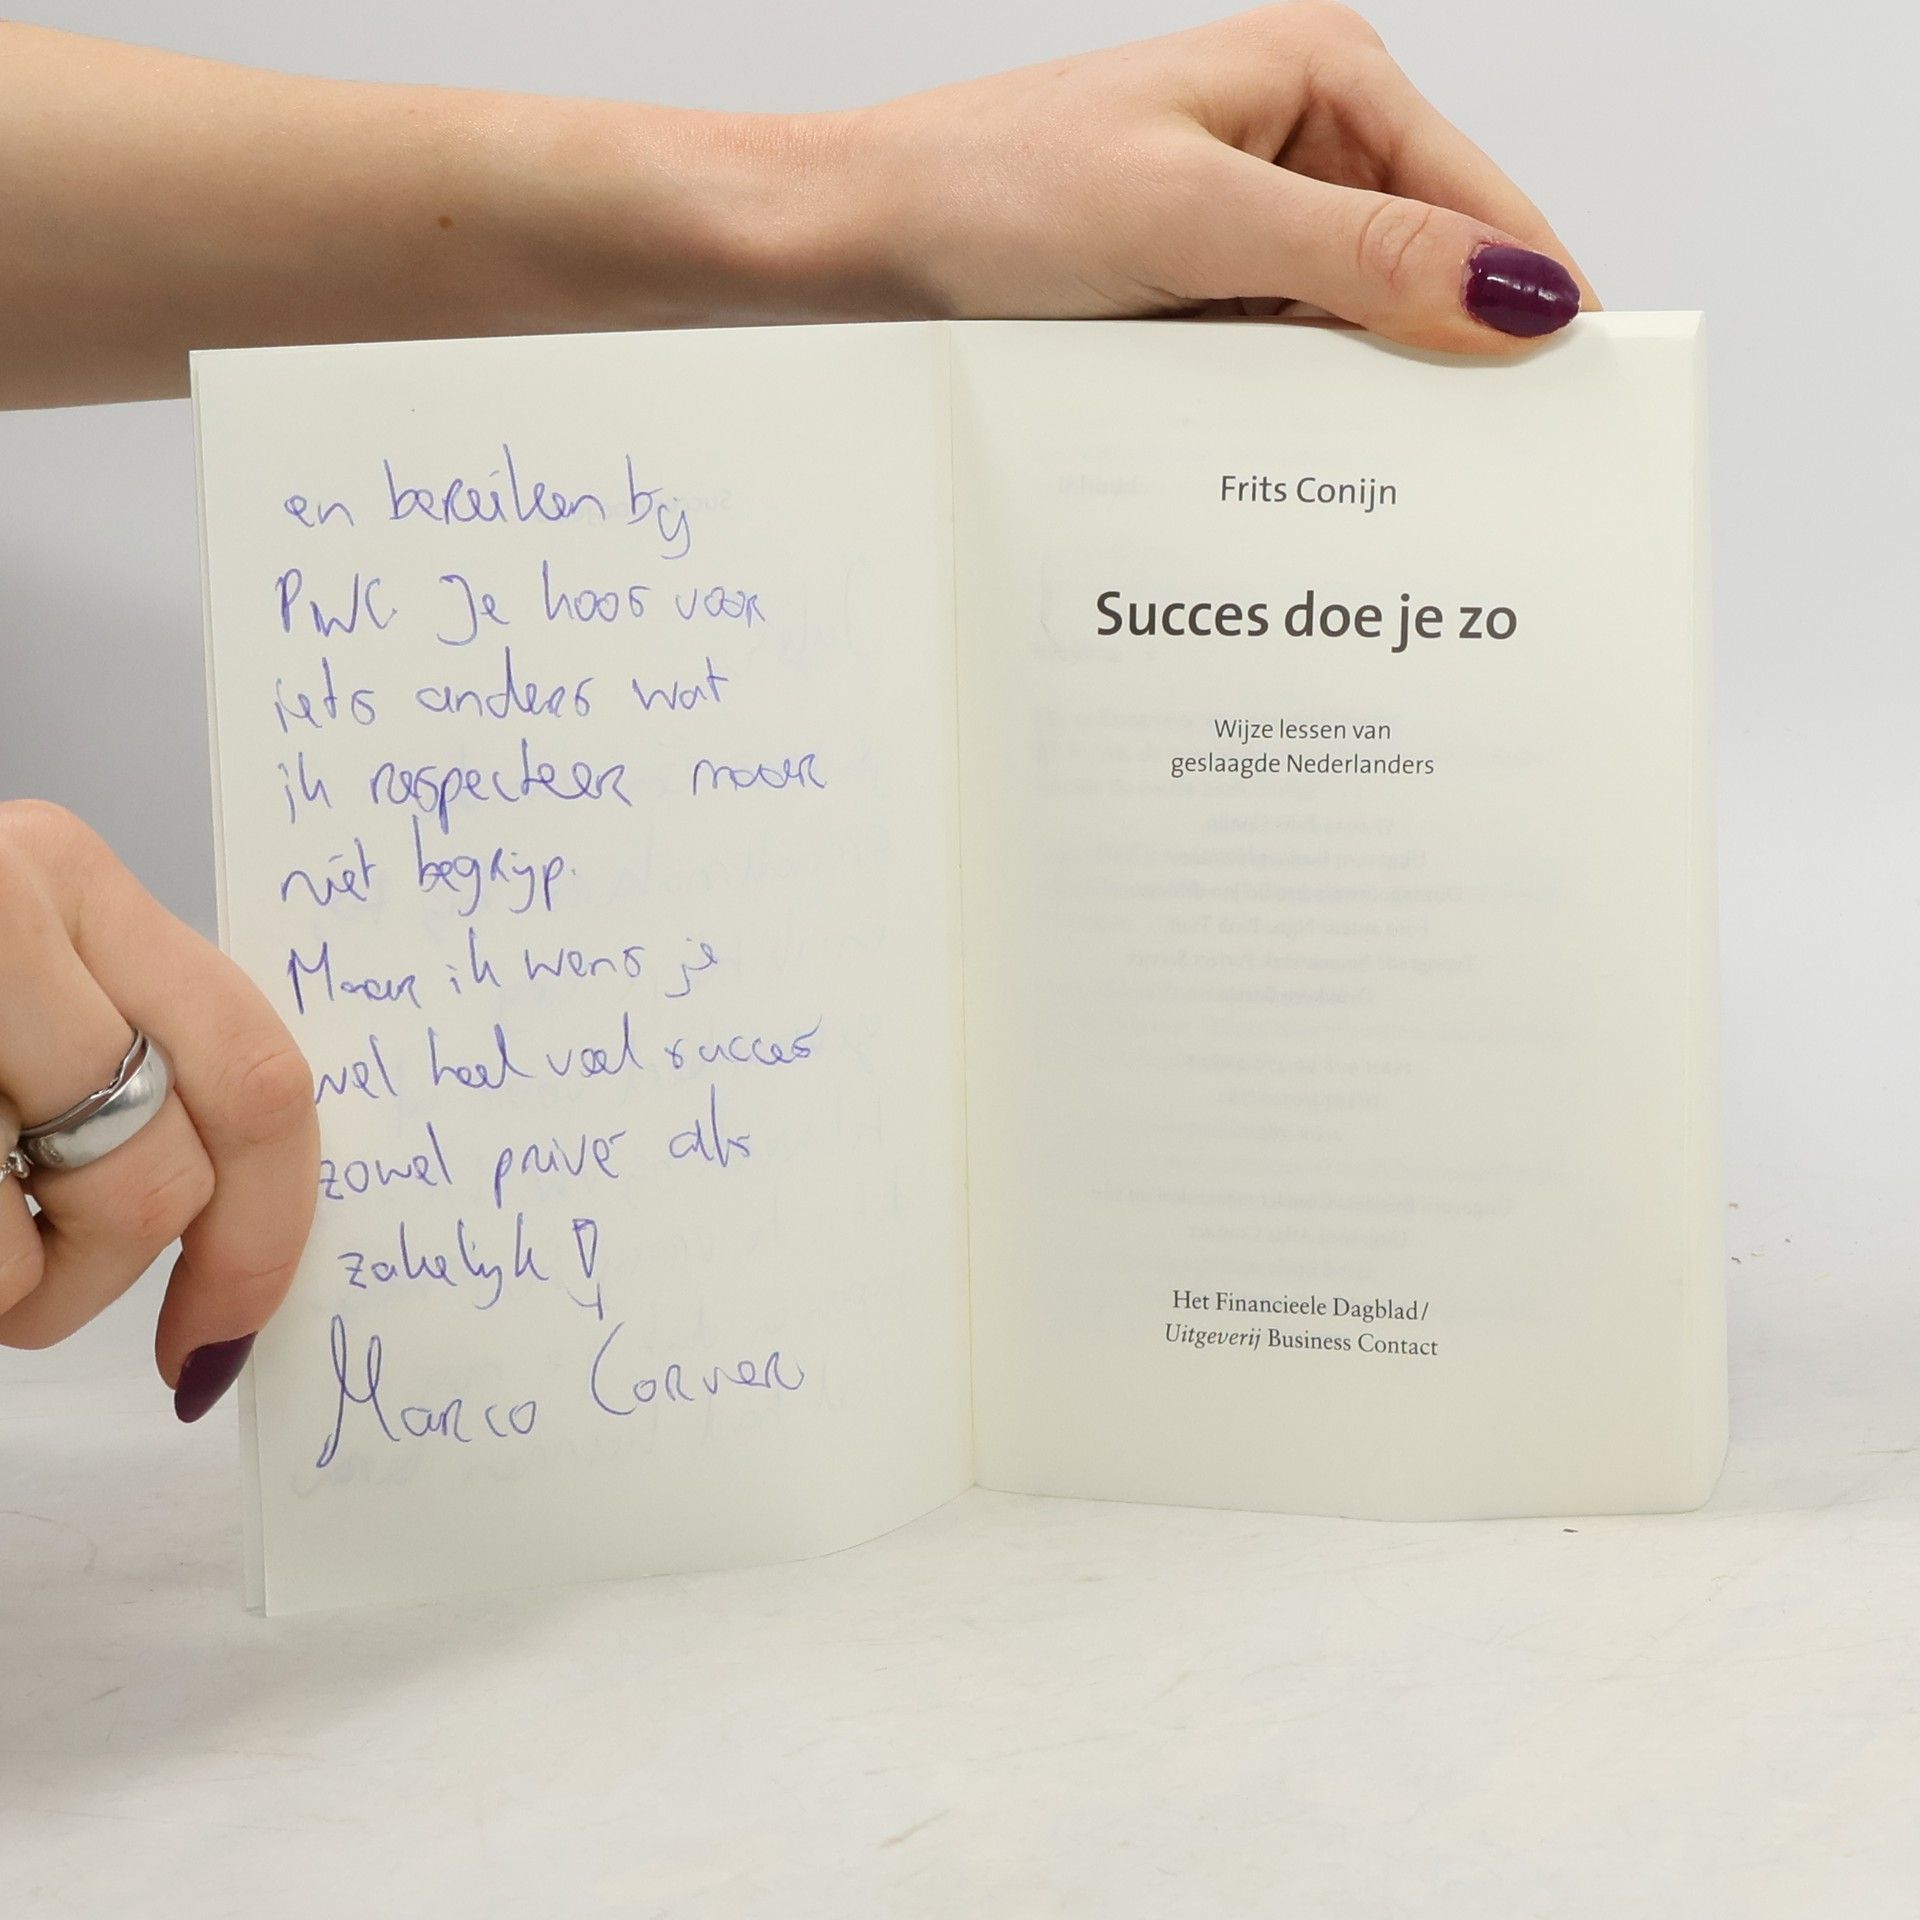 en bereiken bij
PWC Je koos voor
iets anders wat
ik respecteer maar
niet begrijp.
Maar ik wens je
wel heel veel succes
zowel privé als
zakelijk !
Marco Corver
Frits Conijn
Succes doe je zo
Wijze lessen van
geslaagde Nederlanders
Het Financieele Dagblad/
Uitgeverij Business Contact